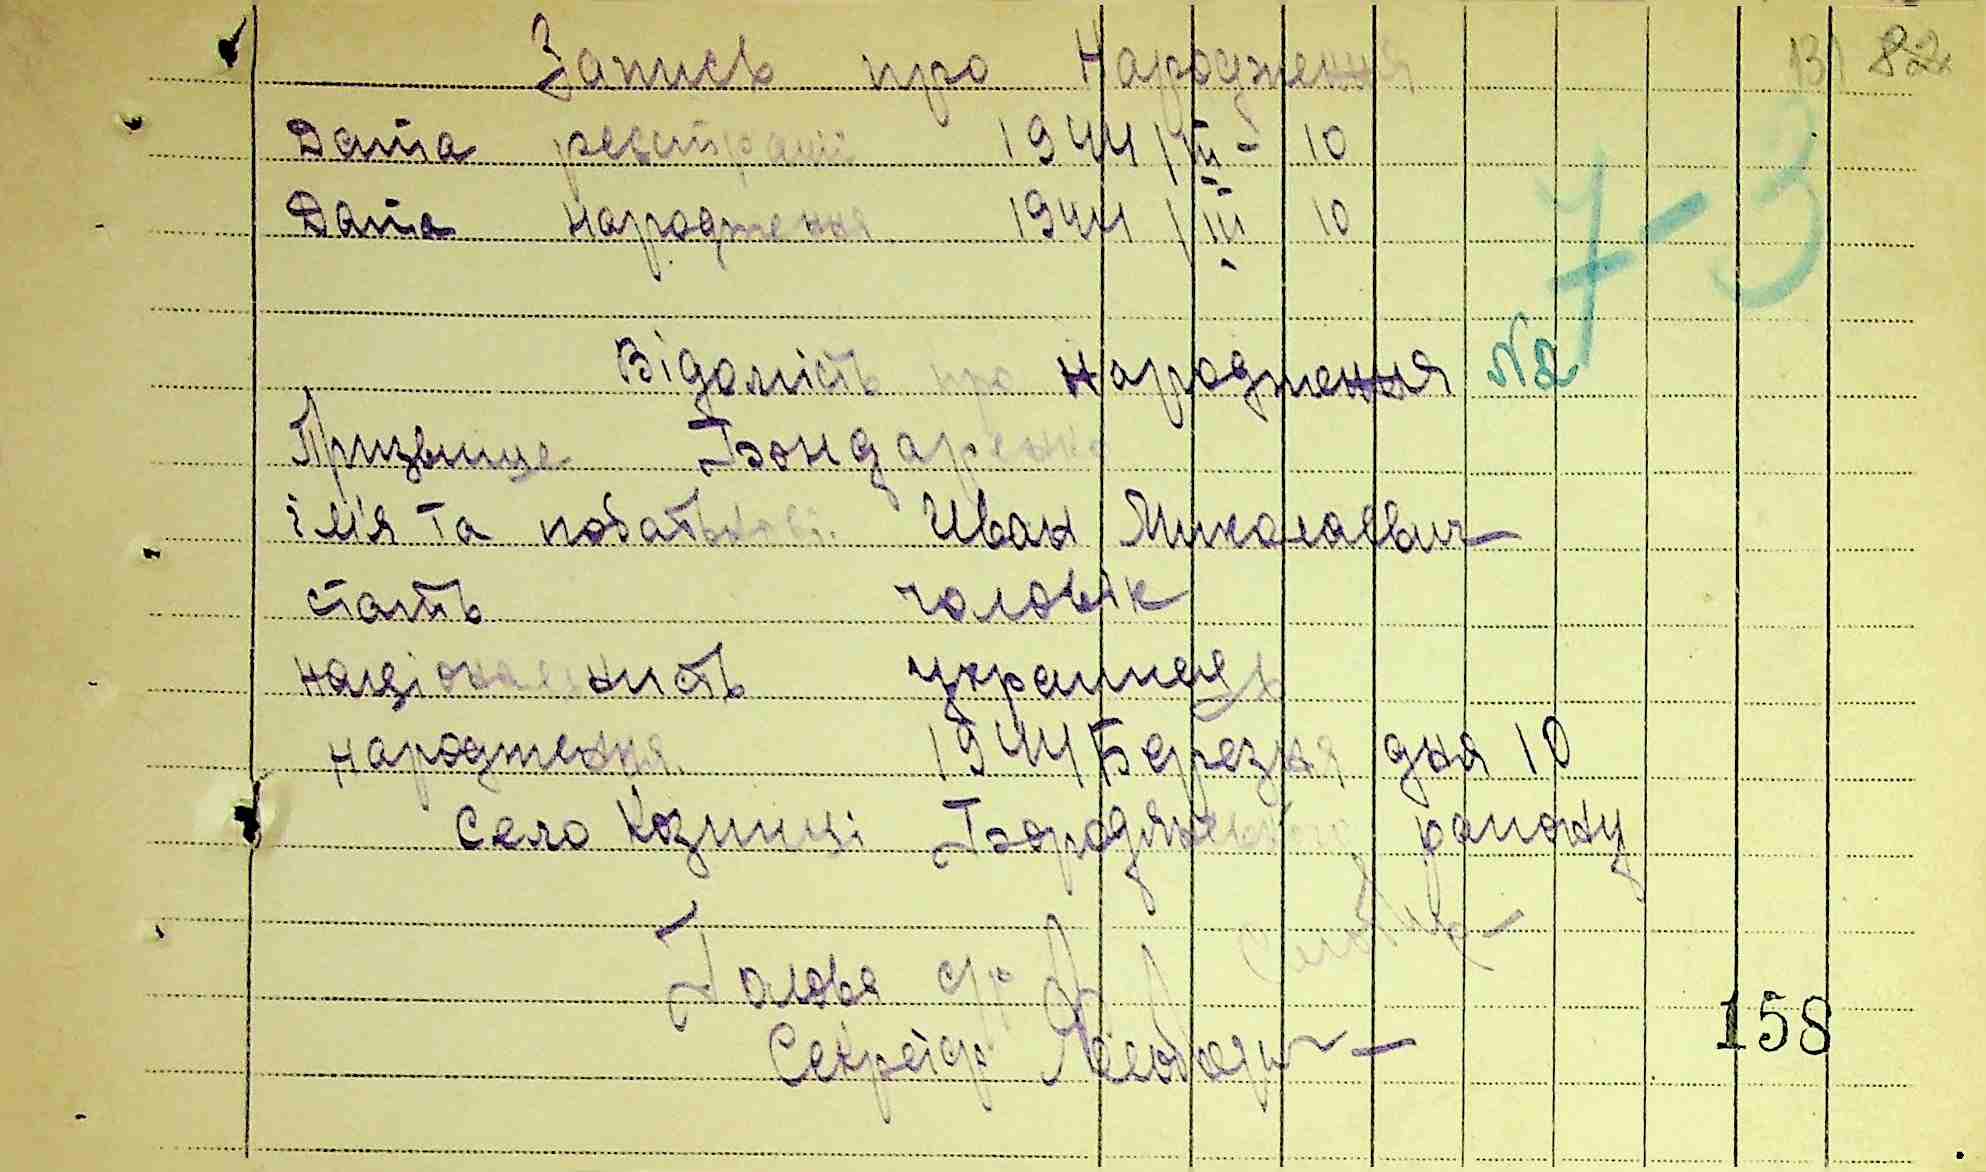 131 82
Запись про Народження
Дата реєстрації 1944 / III - 10
Дата народження 1944 / III 10
7-3
Відомість про Народження №2
Призвище Бондаренко
ім'я та побатькові. Иван Миколаевич
стать чоловік
національність украинець
народження. 1944 Березня дня 10
Село Козинці Бородянського району
Голова с/р
Секретар
158